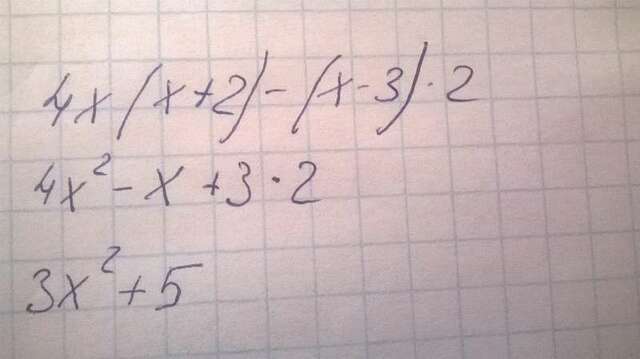 4x(x+2)-(x-3)·2
4x²-x+3·2
3x²+5